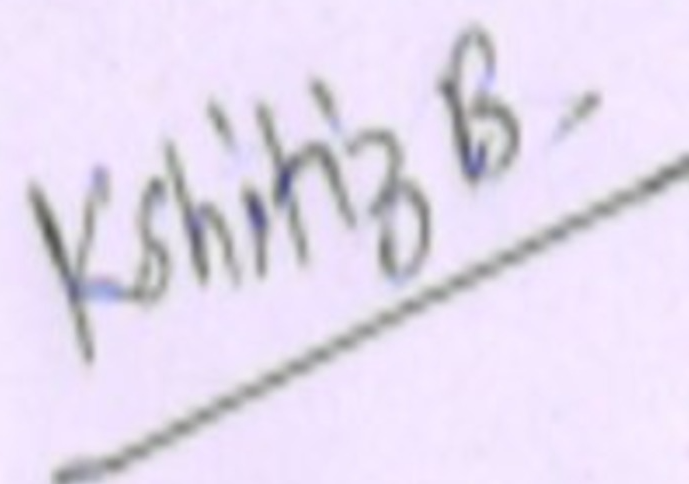 Kshitiz B.